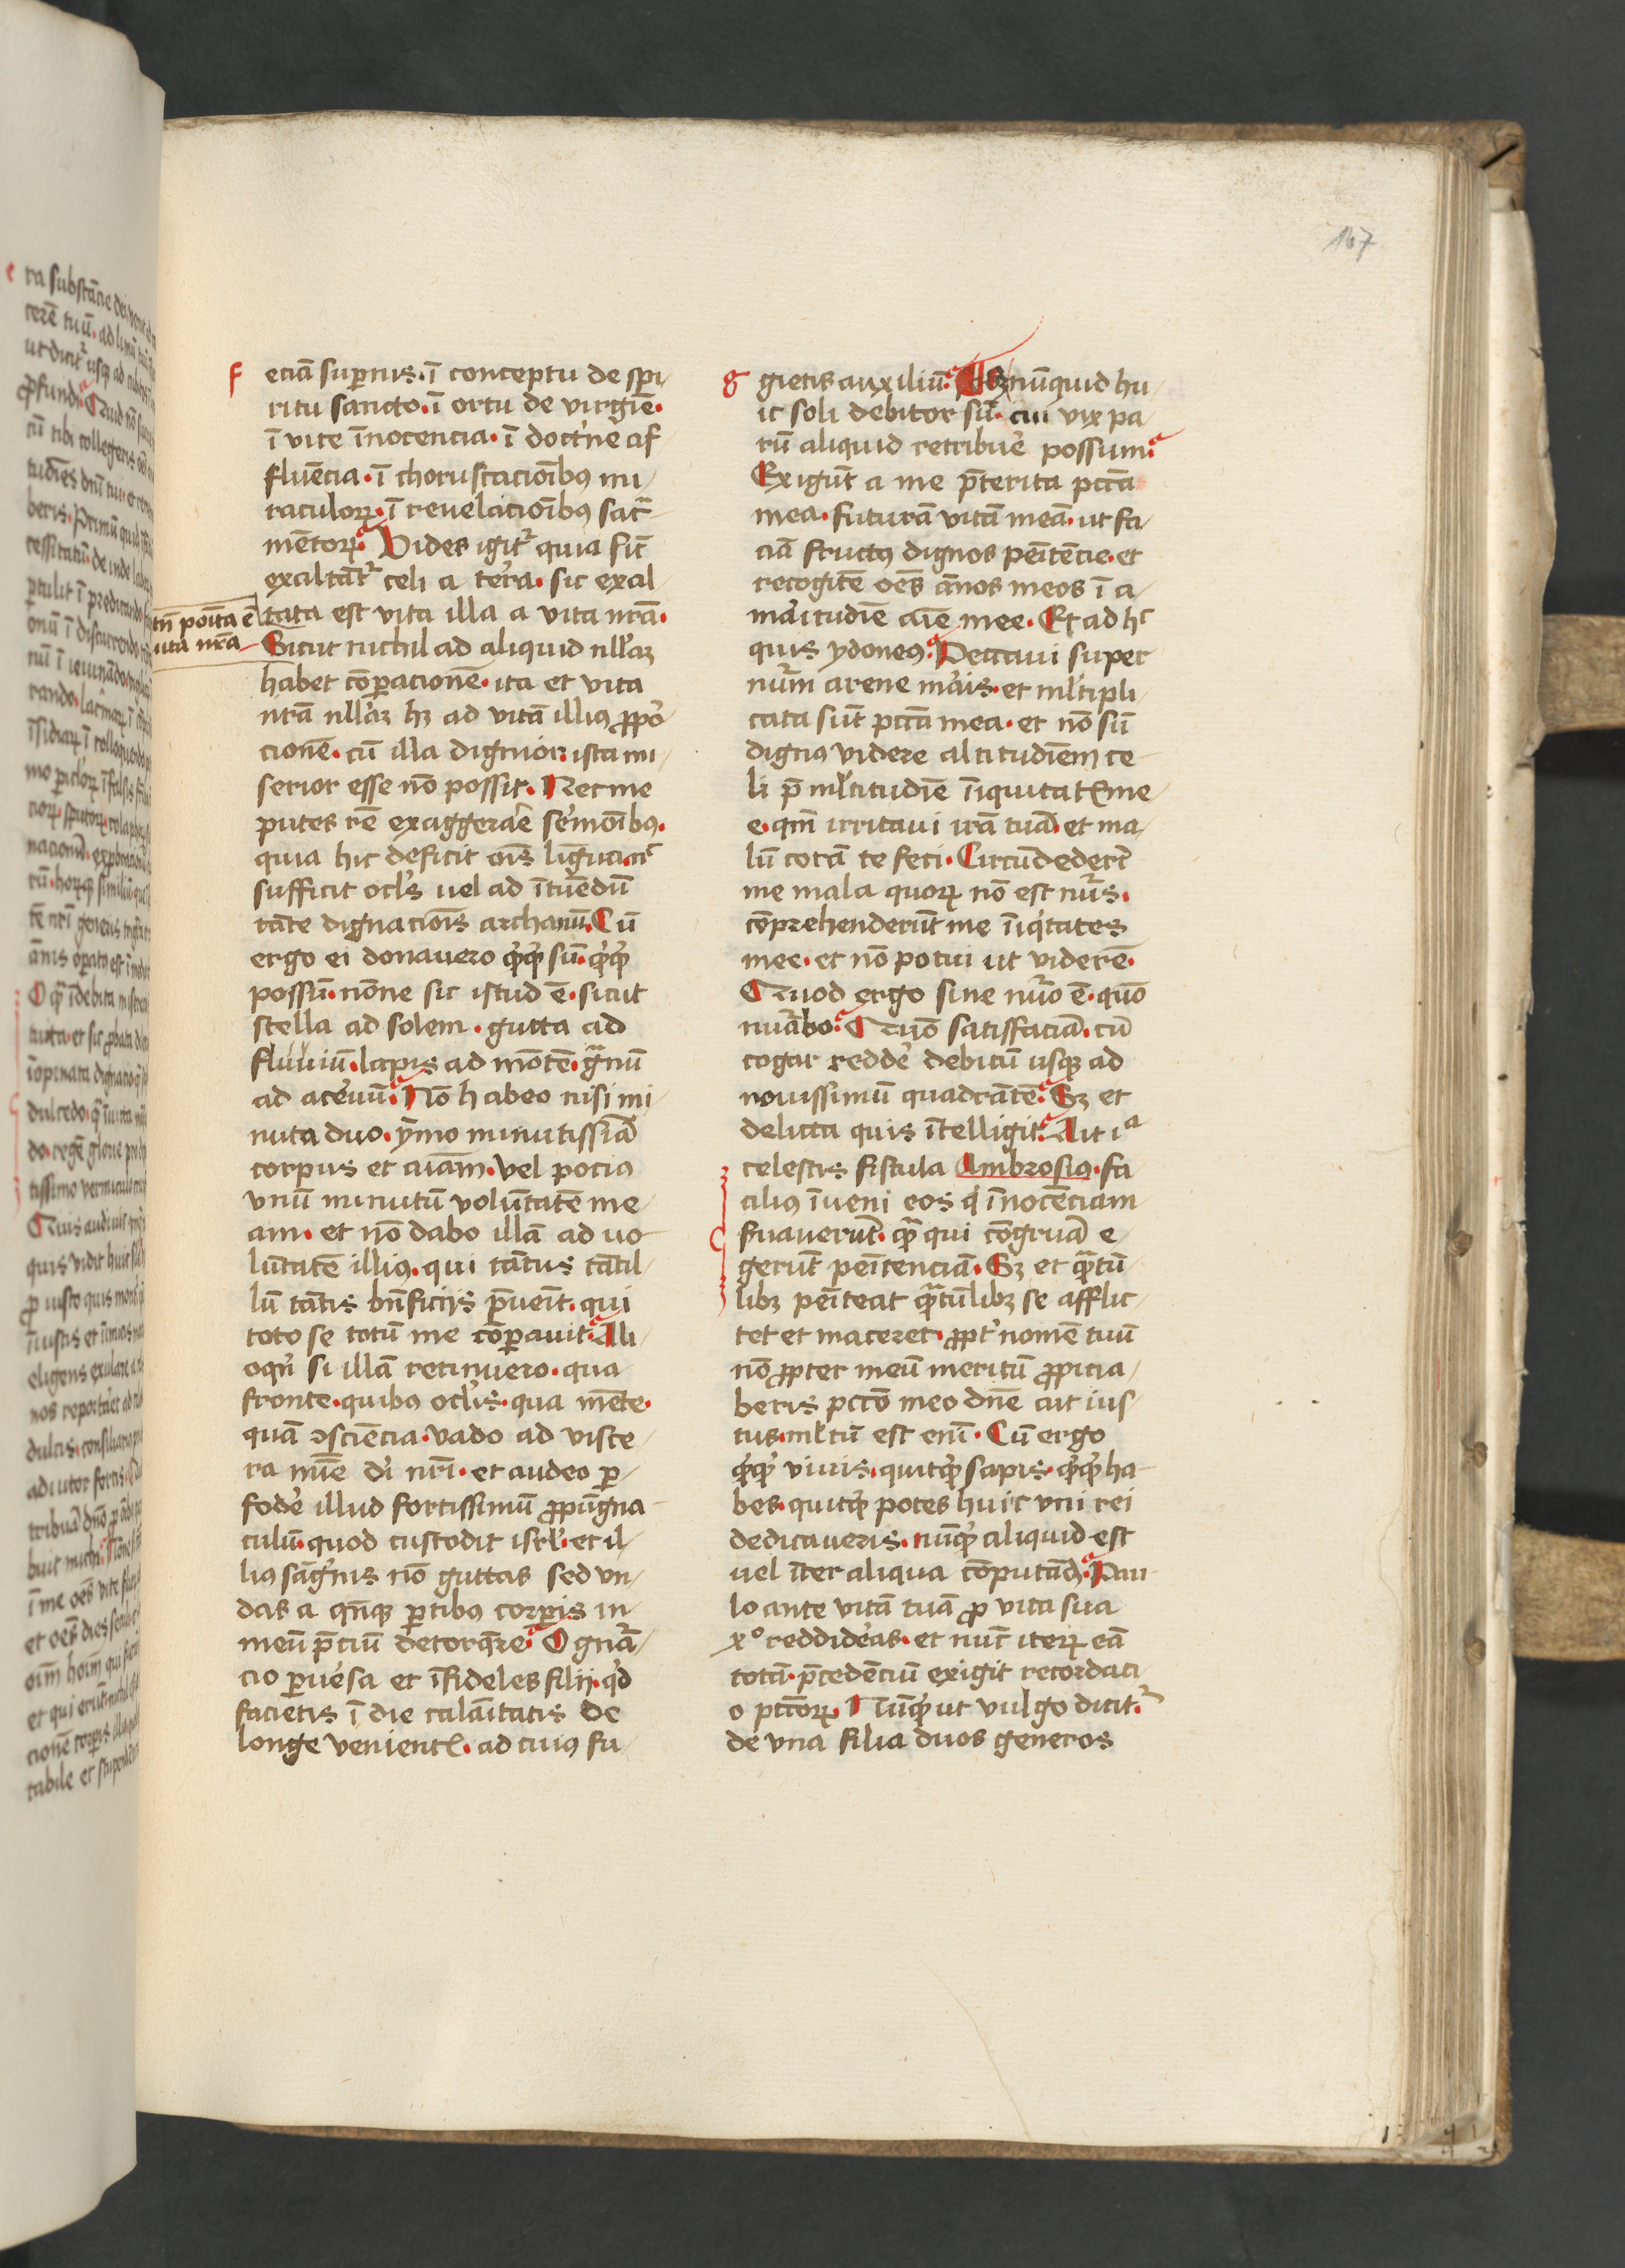 167
f
eciā suꝑnis · ī conceptu de spi/
ritu sancto · ī ortu de virgīe ·
ī vite īnocencia · ī doctͥne af
fluēcia · ī choruscacioībꝰ mi/
raculoꝝ · ī reuelacioībꝰ sacͣ
mētoꝝ · Vides igitͬ quia sic̄
exaltātͬ celi a ter̓a · sic exal
tata est vita illa a vita nr̄a ·
tn̄ poīta ē
uita nr̄a
Sicut nichil ad aliquid nll̓aꝫ
habet cōꝑacionē · ita et vita
nr̄a nll̓aꝫ hꝫ ad vitā illiꝰ ꝓpo̓
cionē · cū illa dignior · ista mi/
serior esse nō possit · Nec me
putes rē exaggerare sermoībꝰ ·
quia hic deficit oīs ligua · nͨ
sufficit ocl̓s uel ad ītuēdū
tāte dignacioīs archanū · Cū
ergo ei donauero qͥcqͥd sū · qͥcqͥd
possū · nōne sic istud ē · sicut
stella ad solem · gutta ad
fluuiū · lapis ad mōtē · gͣnū
ad aceruū · Nō habeo nisi mi
nuta duo · ymo minutissīa
corpus et aīam · vel pociꝰ
vnū minutū volūtatē me/
am · et nō dabo illā ad uo
lūtatē illiꝰ · qui tātus tātil/
lū tātis bn̄ficijs p̄ueīt · qui
toto se totū me cōꝑauit · Ali/
oqͥn si illā retinuero · qua
fronte · quibꝰ ocl̓is · qua mēte ·
quā ɔsciēcia · vado ad visce/
ra mīe dī nr̄i · et audeo ꝑ/
fode̓ illud fortissimū ꝓpūgna
culū · quod custodit isrl̓ · et il/
liꝰ sāgͥnis nō guttas sed vn/
das a qͥnqꝫ ꝑtibꝰ corꝑis in
meū p̄ciū detorqͣre · O gnͣa/
cio ꝑuersa et īfideles filij · qͥd
facietis ī die calaītatis de
longe venientꝭ · ad cuiꝰ fu/
g
gietis auxiliū · Sꝫ nūquid hu/
ic soli debitor sū · cui vix pa/
rū aliquid retribue̓ possum ·
Exigūt a me p̄terita pctā
mea · futurā vitā meā · ut fa/
ciā fructꝰ dignos peītēcie · et
recogitē oēs ānos meos ī a/
maritudīe aīe mee · Et ad hͨ
quis ydoneꝰ · Peccaui super
num̄ arene maris · et ml̓tipli
cata sūt pctā mea · et nō sū
dignꝰ videre altitudīem ce
li p̄ ml̓titudīe īiquitatꝭ me/
e · qm̄ irritaui irā tuā · et ma/
lū corā te feci · Circūdederūt
me mala quoꝝ nō est num̄s ·
cōprehenderūt me īiqͥtates
mee · et nō potui ut viderē ·
Quod ergo sine num̄o ē · quō
numͣbo · Quō satisfaciā · cū
cogar redde̓ debitū usqꝫ ad
nouissimū quadrātē · Sꝫ et
delicta quis ītelligit · Ait iͣ
celestis fistula Ambrosiꝰ · fa
ciliꝰ īueni eos qͥ īnocēciam
ẜuauerūt · qͣ qui cōgruā e/
gerūt peītenciā · Sꝫ et qͣtū
libꝫ peīteat qͣtūlibꝫ se afflic/
tet et maceret · ꝓpt̓ nomē tuū
nō ꝓpter meū meritū ꝓpicia/
beris pctō meo dn̄e ait ius/
tus · ml̓tū est enī · Cū ergo
qͥcqͥd viuis · quitqͥd sapis · qͥcqͥd ha
bes · quitqͥd potes huic vni rei
dedicaueris · nūqͥd aliquid est
vel īter aliqua cōputādū · Pau
lo ante vitā tuā ꝓ vita sua
xͦ reddideras · et nūc iteꝝ eā
totā · p̄cedēciū exigit recordaci
o pctōꝝ · Nūqͥd ut vulgo dicitͬ ·
de vna filia duos generos